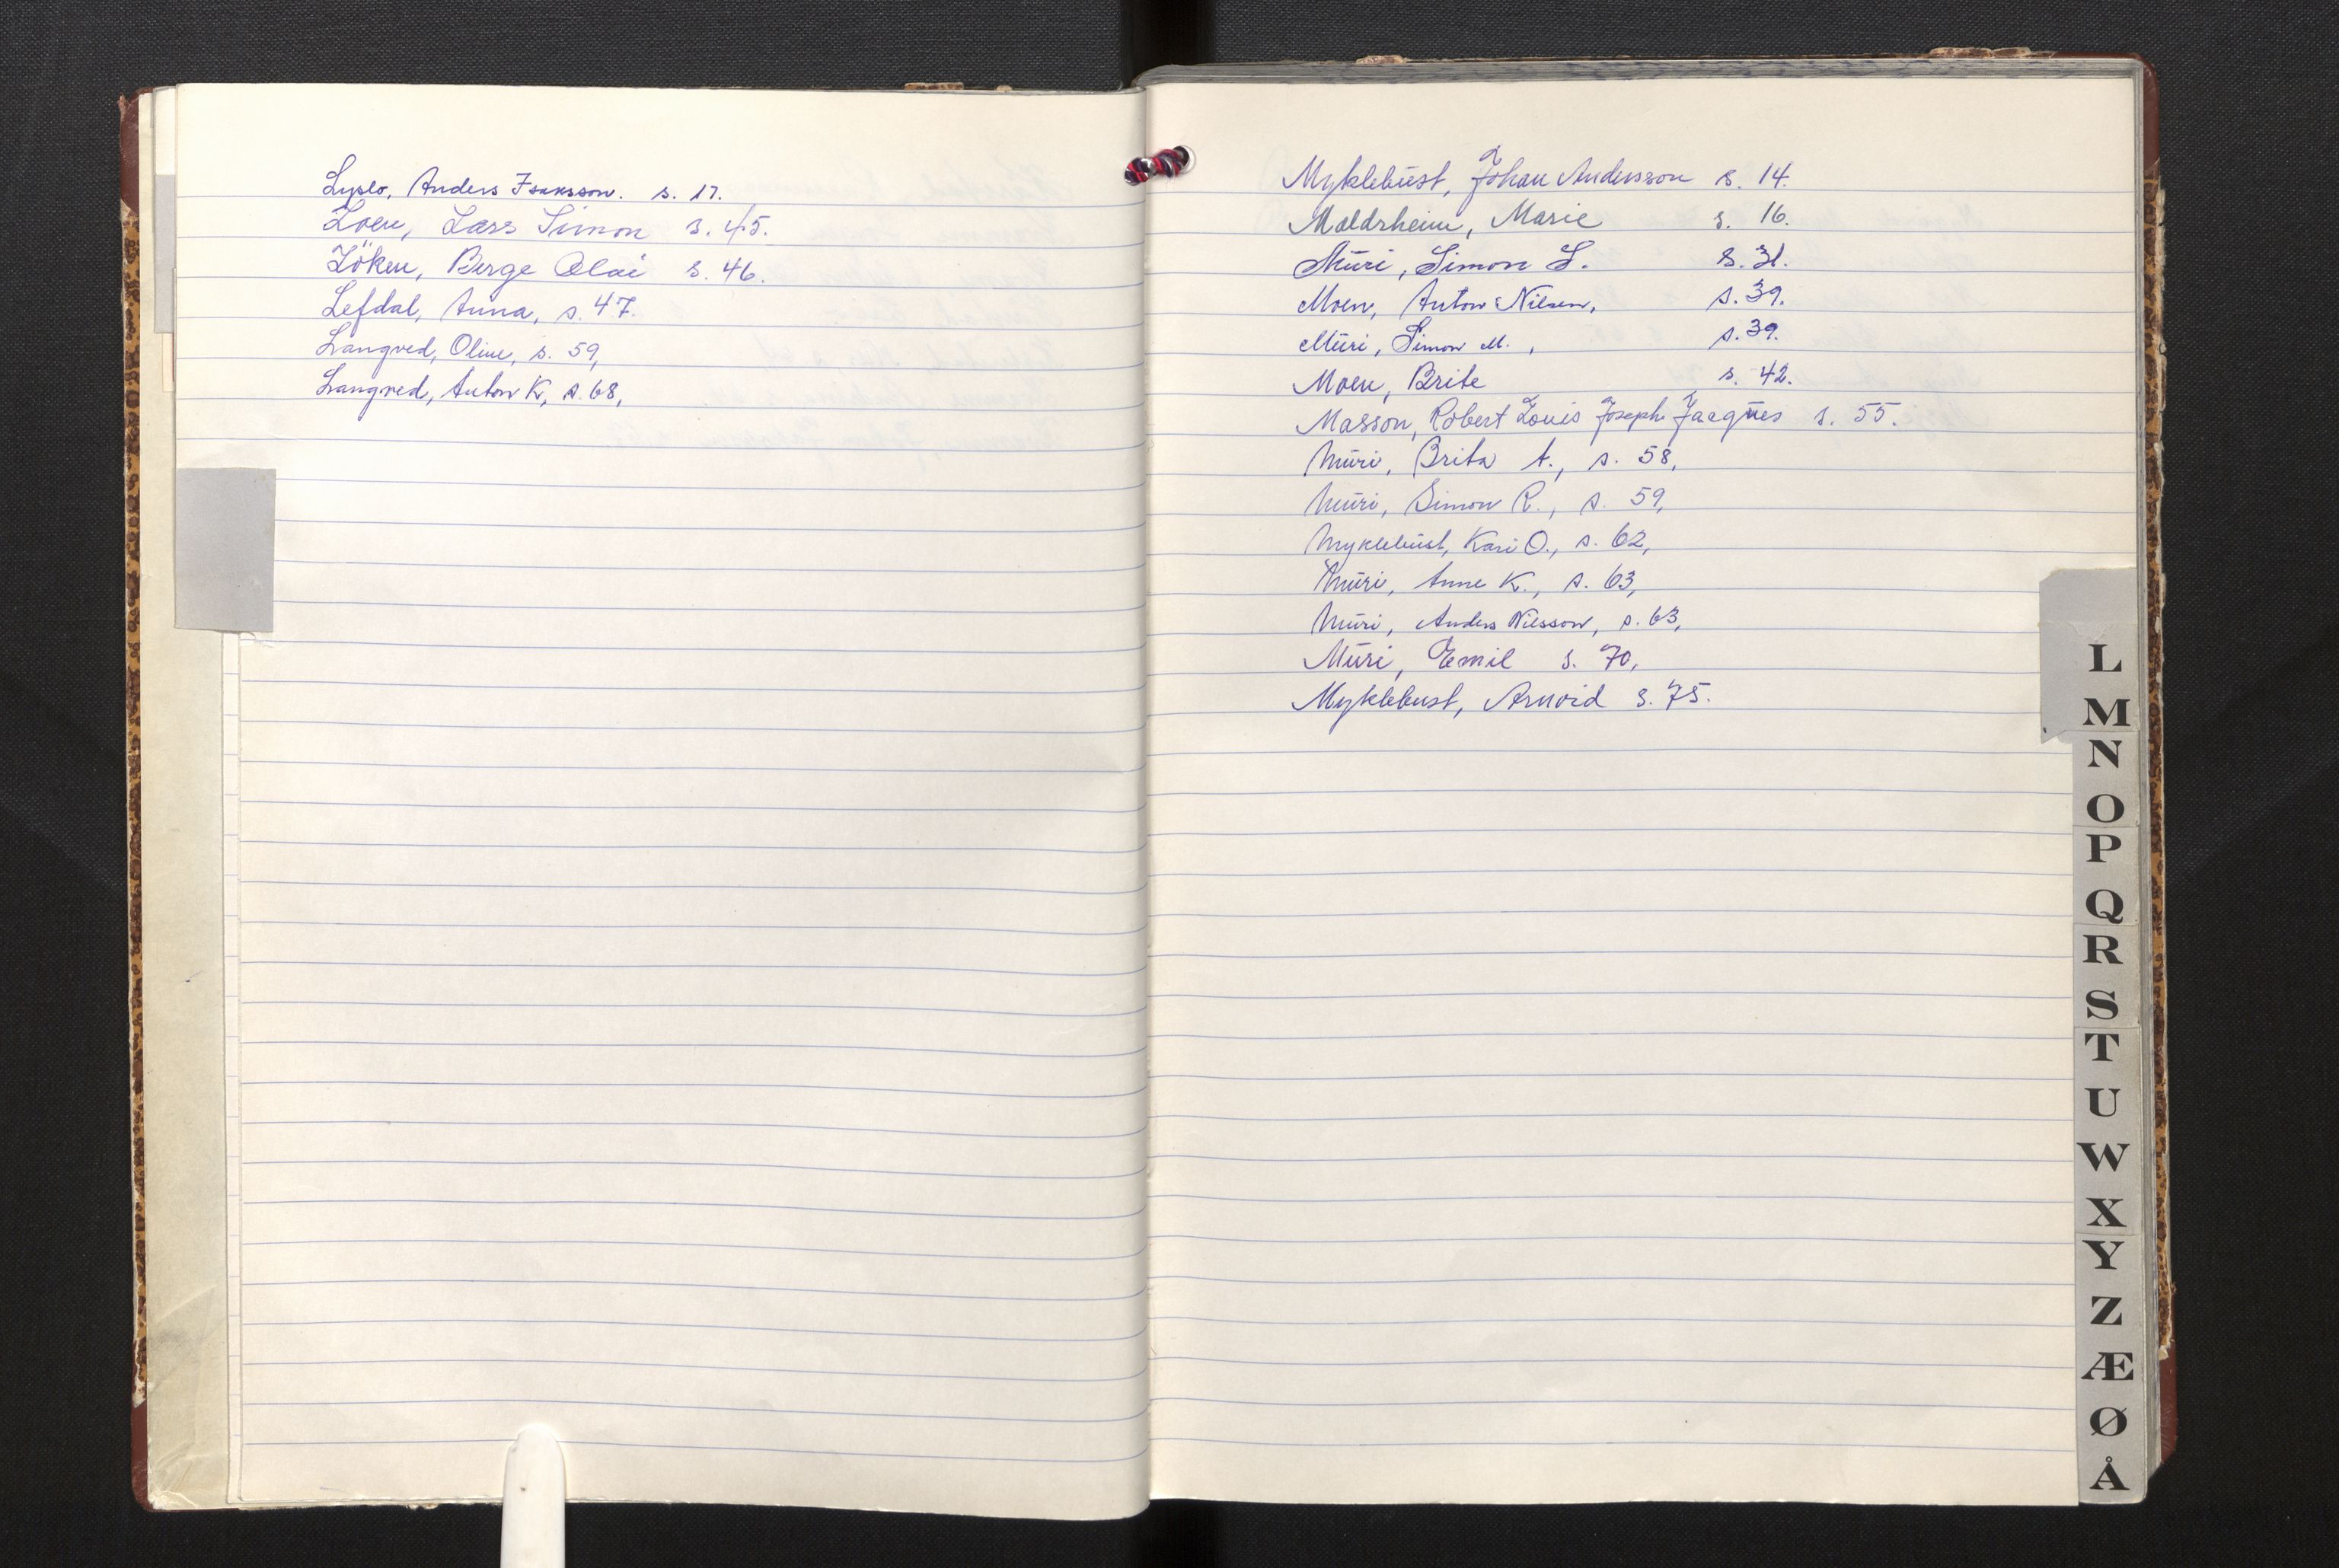 Lyslo, Anders Isaksson. s. 17.
Loen, Lars Simon s. 45.
Löken, Berge Olai s. 46.
Lefdal, Anna, s. 47.
Langved, Oline, s. 59,
Langved, Anton K, s. 68,
Myklebūst, Johan Andersson s. 14.
Maldrheim, Marie s. 16.
Mūri, Simon S. s. 31.
Moen, Anton Nilsen, s. 39.
Mūri, Simon M., s. 39.
Moen, Brite s. 42.
Masson, Robert Louis Joseph Jacqūes s. 55.
Mūri, Brita A., s. 58,
Mūri, Simon R., s. 59,
Myklebūst, Kari O., s. 62,
Mūri, Anne K., s. 63,
Mūri, Anders Nilsson, s. 63,
Mūri, Emil s. 70,
Myklebust, Arnoid s. 75.
L
M
N
O
P
Q
R
S
T
U
W
X
Y
Z
Æ
Ø
Å